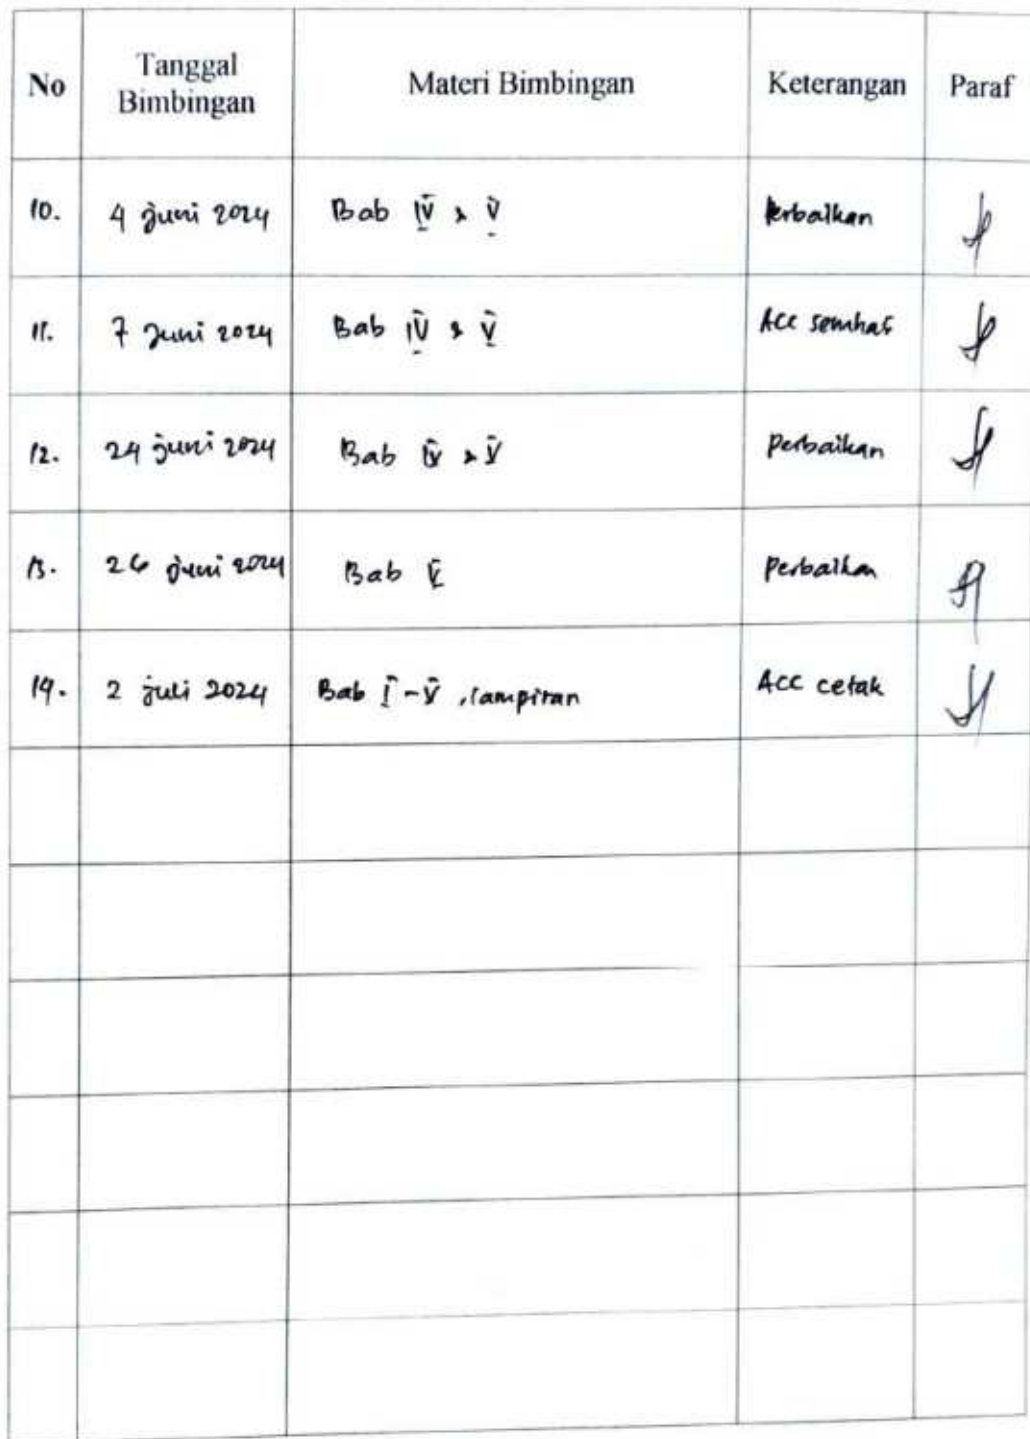 No Tanggal Bimbingan Materi Bimbingan Keterangan Paraf
10. 4 Juni 2024 Bab IV & V Perbaikan
11. 7 Juni 2024 Bab IV & V Acc semhas
12. 24 Juni 2024 Bab IV & V Perbaikan
13. 26 Juni 2024 Bab V Perbaikan
14. 2 Juli 2024 Bab I - V, lampiran Acc cetak